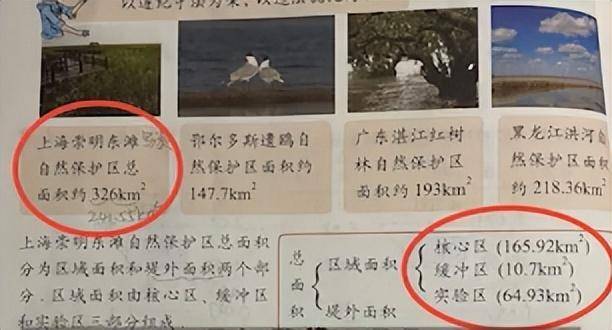 上海崇明东滩
自然保护区总
面积约 326km²
241.55km²
鄂尔多斯遗鸥自
然保护区面积约
147.7km²
广东湛江红树
林自然保护区
面积约 193km²
黑龙江洪河自
然保护区面积
约 218.36km²
上海崇明东滩自然保护区总面积
分为区域面积和堤外面积两个部
分．区域面积由核心区、缓冲区
和实验区三部分组成．
总面积
区域面积
核心区 (165.92km²)
缓冲区 (10.7km²)
实验区 (64.93km²)
堤外面积